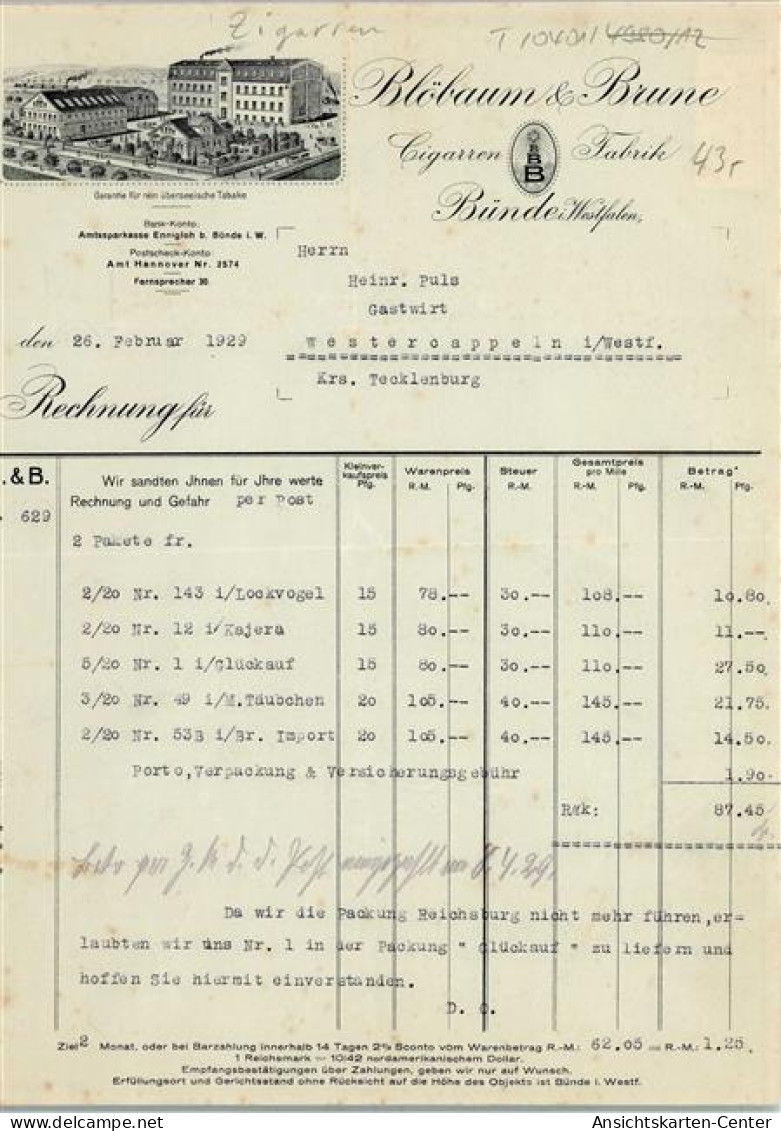 Zigarren
T 10401/4980/12
Blöbaum & Brune
Cigarren Fabrik
B
B B
43r
Bünde i. Westfalen,
Garantie für rein überseeische Tabake
Bank-Konto:
Amtssparkasse Ennigloh b. Bünde i. W.
Postscheck-Konto
Amt Hannover Nr. 2574
Fernsprecher 30
Herrn
Heinr. Puls
Gastwirt
Westercappeln i/Westf.
Krs. Tecklenburg
den 26. Februar 1929
Rechnung für
. & B.
629
Wir sandten Jhnen für Jhre werte
Rechnung und Gefahr per Post
Kleinver-
kaufspreis
Pfg.
Warenpreis
R.-M. Pfg.
Steuer
R.-M.
Gesamtpreis
pro Mille
R.-M. Pfg.
Betrag
R.-M. Pfg.
2 Pakete fr.
2/20 Nr. 143 i/Lockvogel 15 78.-- 30.-- 108.-- 10.80.
2/20 Nr. 12 i/Kajera 15 80.-- 30.-- 110.-- 11.--.
5/20 Nr. 1 i/Glückauf 15 80.-- 30.-- 110.-- 27.50
3/20 Nr. 49 i/M.Täubchen 20 105.-- 40.-- 145.-- 21.75.
2/20 Nr. 53B i/Br. Import 20 105.-- 40.-- 145.-- 14.50.
Porto,Verpackung & Versicherungsgebühr 1.90.
RMk: 87.45
d. d. Post eingezahlt 8.4.29.
Da wir die Packung Reichsburg nicht mehr führen,er-
laubten wir uns Nr. 1 in der Packung " Glückauf " zu liefern und
hoffen Sie hiermit einverstanden.
D. O.
Ziel 2 Monat, oder bei Barzahlung innerhalb 14 Tagen 2% Sconto vom Warenbetrag R.-M.: 62.05 = R.-M.: 1.25.
1 Reichsmark = 10/42 nordamerikanischem Dollar.
Empfangsbestätigungen über Zahlungen, geben wir nur auf Wunsch.
Erfüllungsort und Gerichtsstand ohne Rücksicht auf die Höhe des Objekts ist Bünde i. Westf.
Ansichtskarten-Center